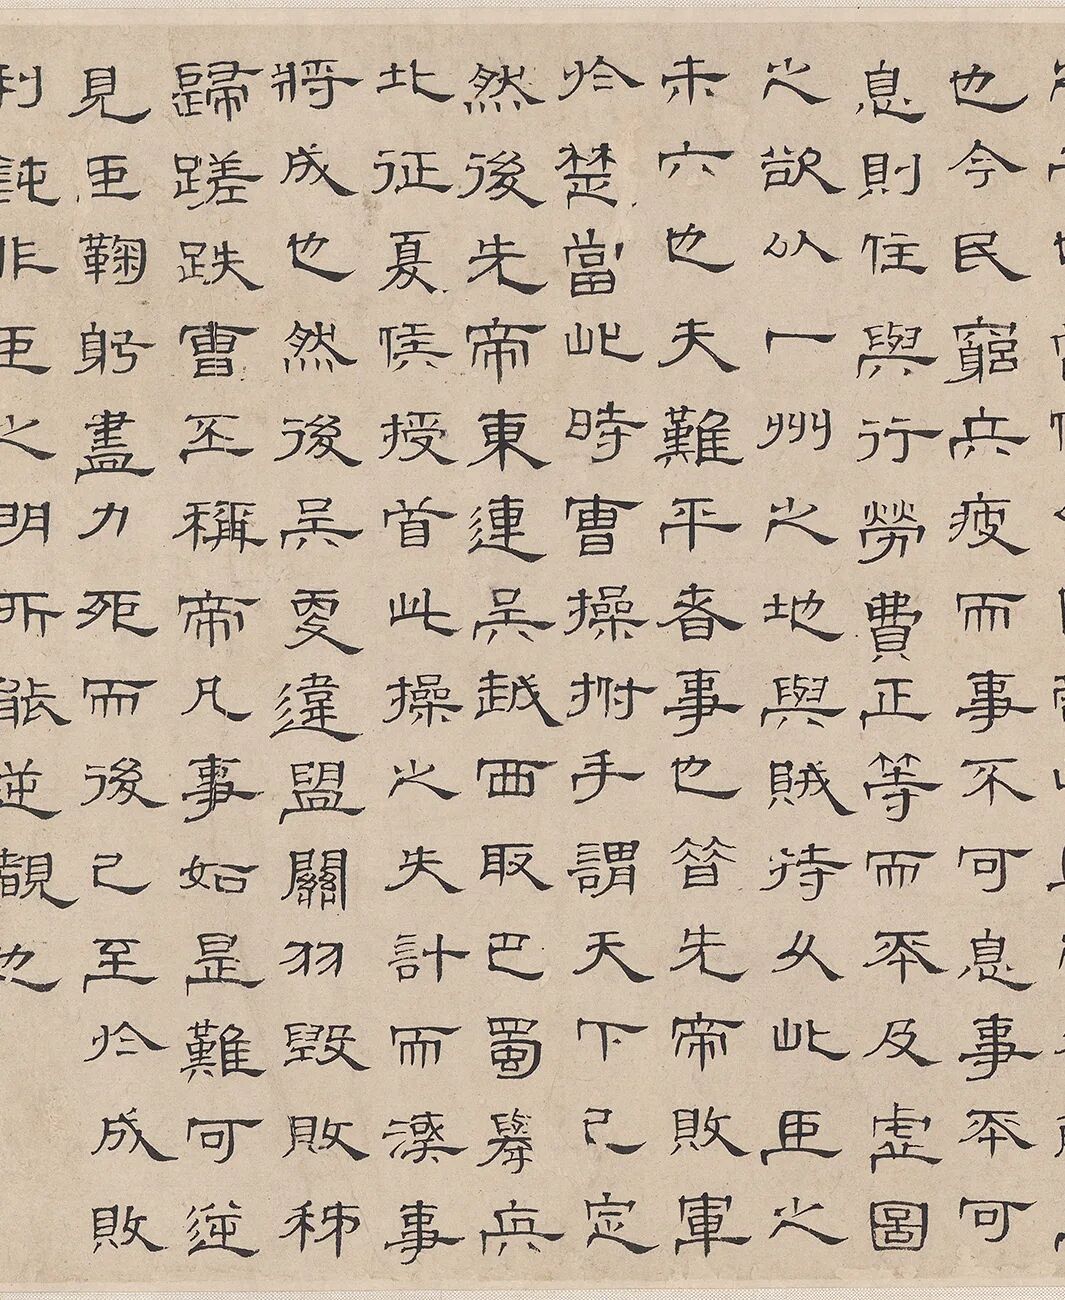 也今民窮兵疲而事不可息事不可
息則住與行勞費正等而不及虛圖
之欲以一州之地與賊持久此臣之
未六也夫難平者事也昔先帝敗軍
於楚當此時曹操拊手謂天下已定
然後先帝東連吳越西取巴蜀舉兵
北征夏侯授首此操之失計而漢事
將成也然後吳更違盟關羽毀敗秭
歸蹉跌曹丕稱帝凡事如是難可逆
見臣鞠躬盡力死而後已至於成敗
利鈍非臣之明所能逆覩也